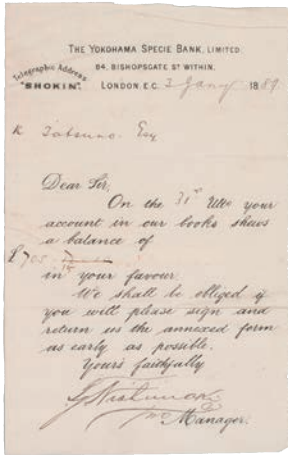 THE YOKOHAMA SPECIE BANK, LIMITED.
84, BISHOPSGATE ST WITHIN,
Telegraphic Address
"SHOKIN".
LONDON, E.C. 3 Jany 1889
K Tatsuno Esq
Dear Sir,
On the 31st Ulto your
account in our books shews
a balance of
in your favour.
We shall be obliged if
you will please sign and
return us the annexed form
as early as possible.
Yours faithfully
Manager.